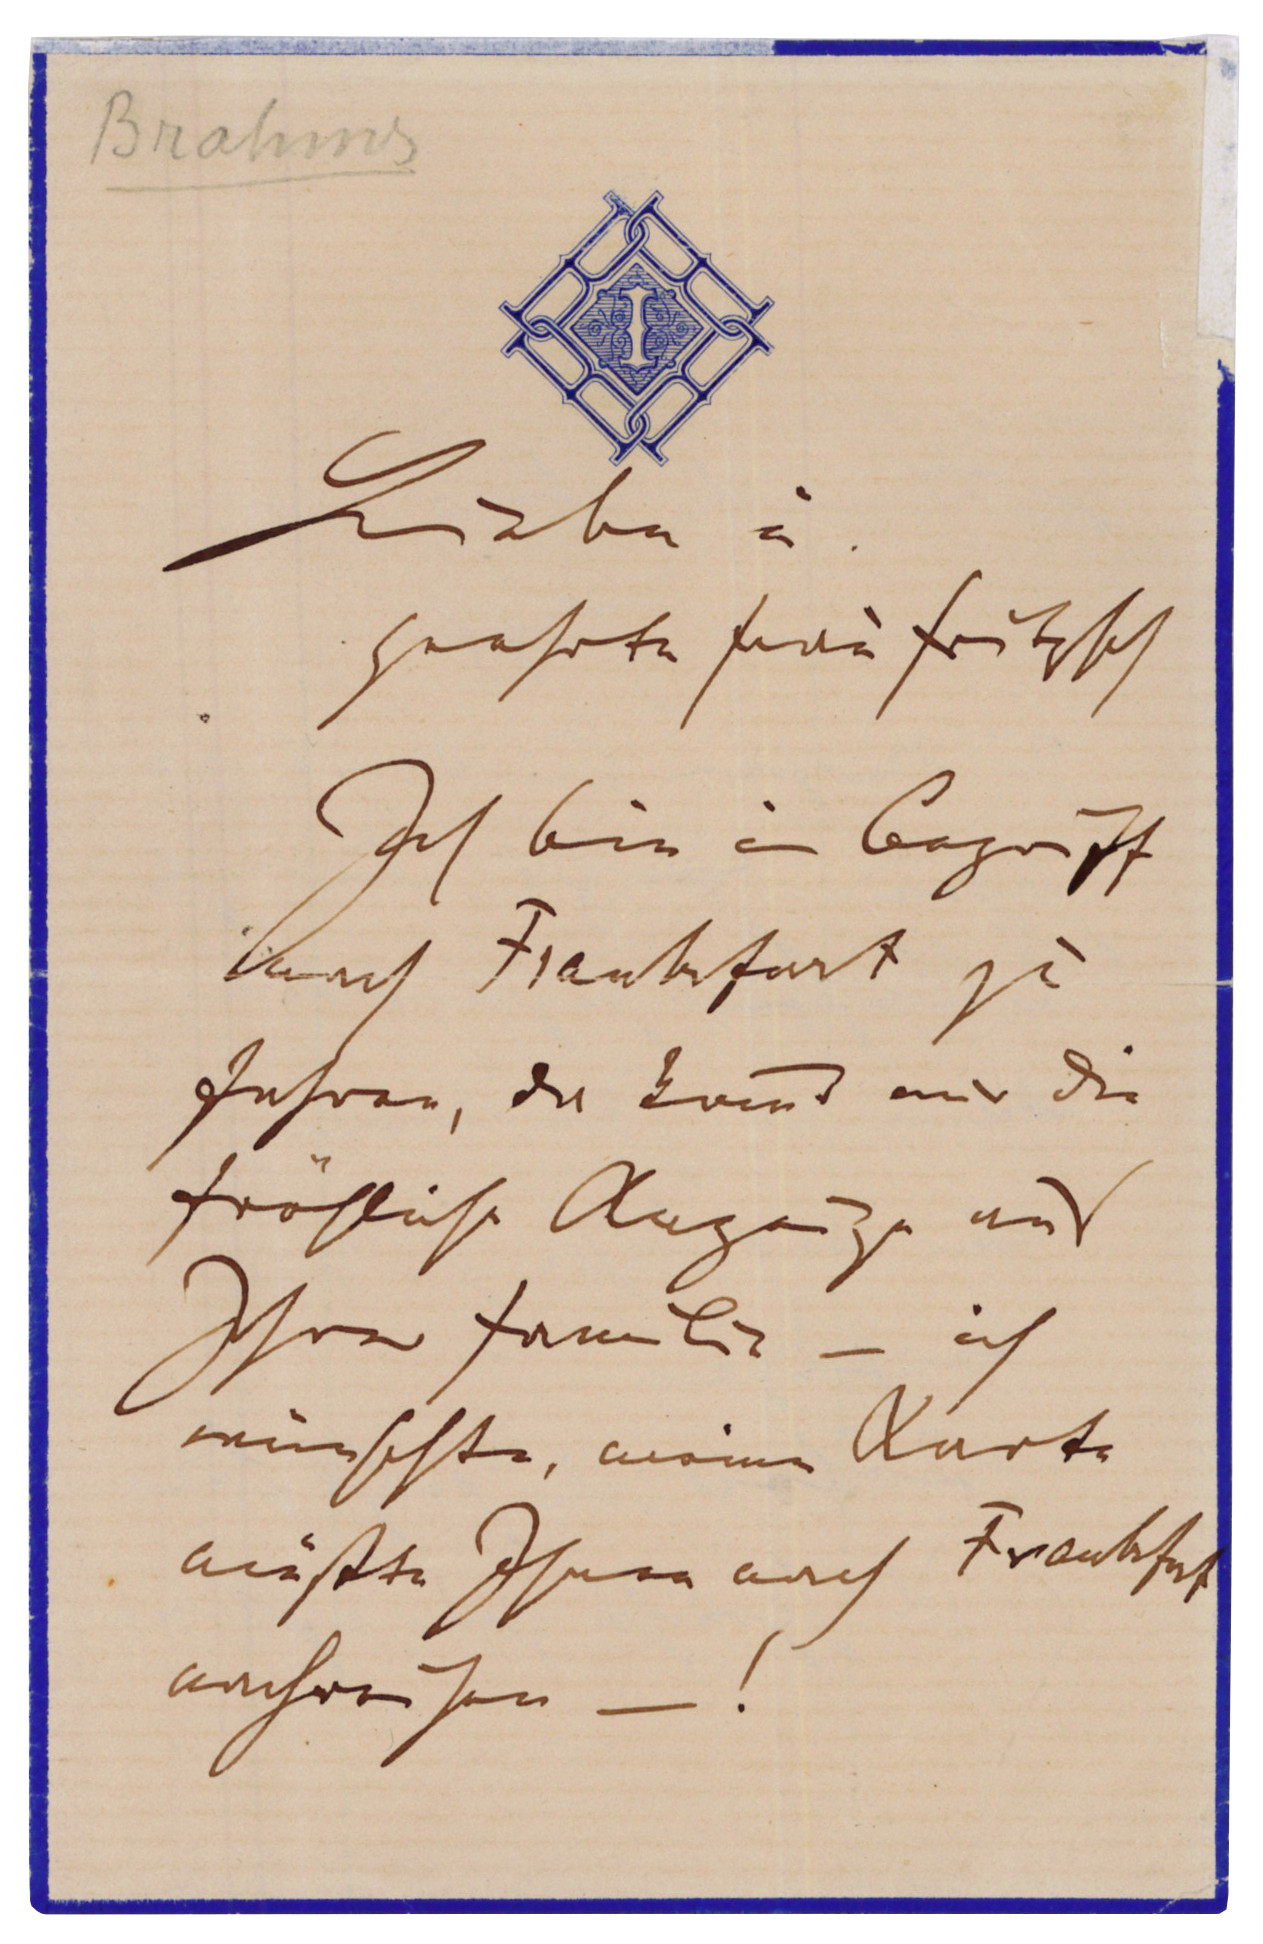 Brahms
I
Liebe u.
geehrte Frau Fritzsch
Ich bin im Begriff
nach Frankfurt zu
fahren, da kommt mir die
fröhliche Anzeige aus
Ihrer Familie — ich
wünschte, meine Karte
müßte Ihnen nach Frankfurt
nachreisen — !